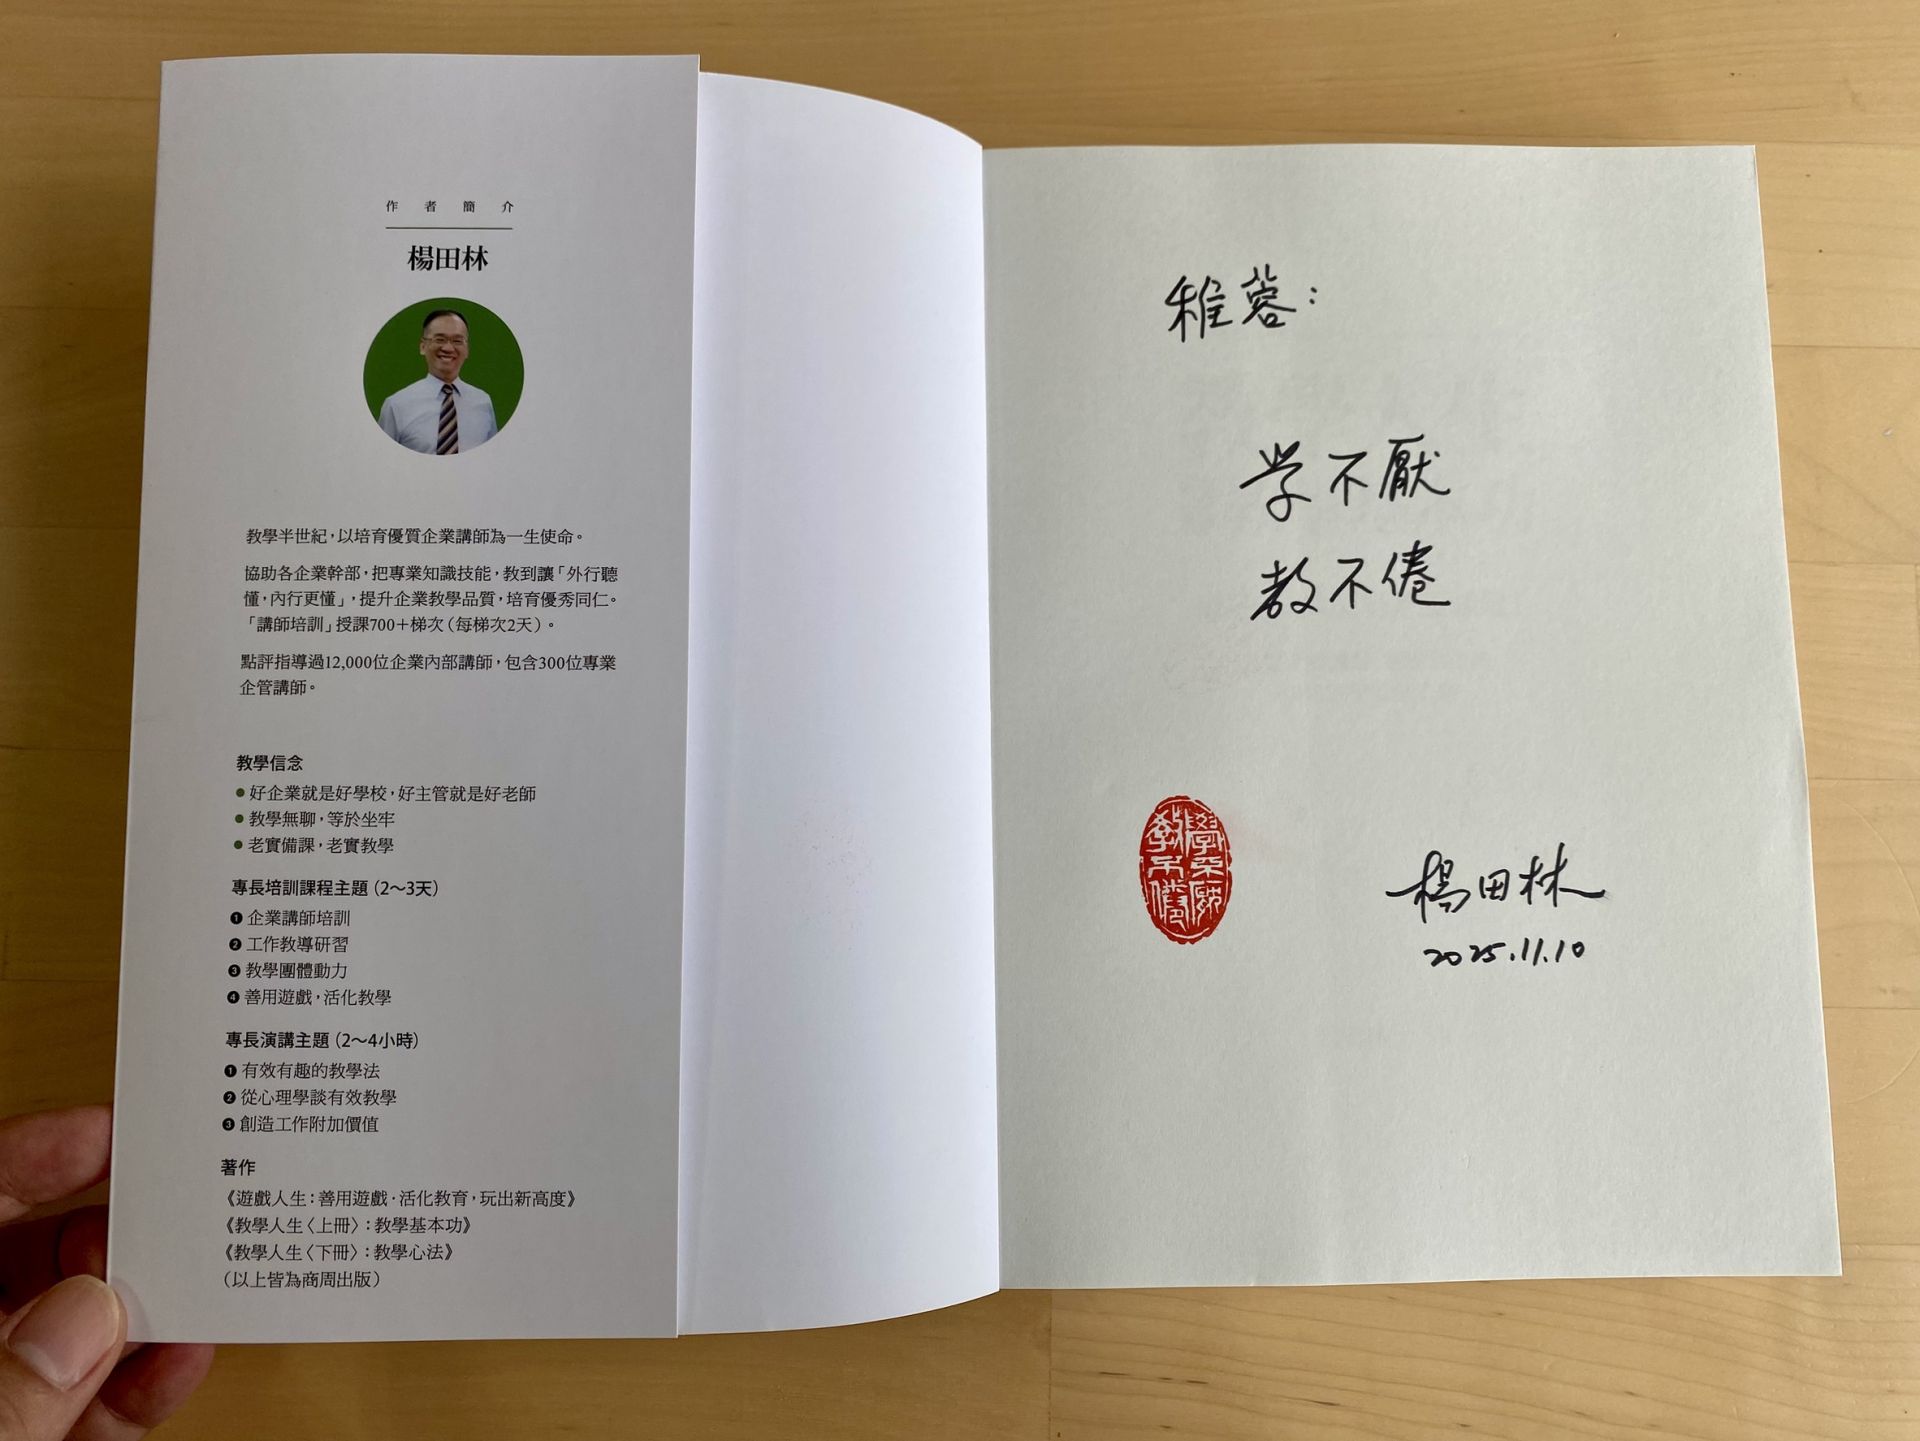 作者簡介
楊田林
教學半世紀，以培育優質企業講師為一生使命。
協助各企業幹部，把專業知識技能，教到讓「外行聽
懂，內行更懂」，提升企業教學品質，培育優秀同仁。
「講師培訓」授課700＋梯次（每梯次2天）。
點評指導過12,000位企業內部講師，包含300位專業
企管講師。
教學信念
● 好企業就是好學校，好主管就是好老師
● 教學無聊，等於坐牢
● 老實備課，老實教學
專長培訓課程主題（2～3天）
❶ 企業講師培訓
❷ 工作教導研習
❸ 教學團體動力
❹ 善用遊戲，活化教學
專長演講主題（2～4小時）
❶ 有效有趣的教學法
❷ 從心理學談有效教學
❸ 創造工作附加價值
著作
《遊戲人生：善用遊戲·活化教育，玩出新高度》
《教學人生〈上冊〉：教學基本功》
《教學人生〈下冊〉：教學心法》
（以上皆為商周出版）
稚蓉：
学不厭
教不倦
學不厭
教不倦
楊田林
2025.11.10